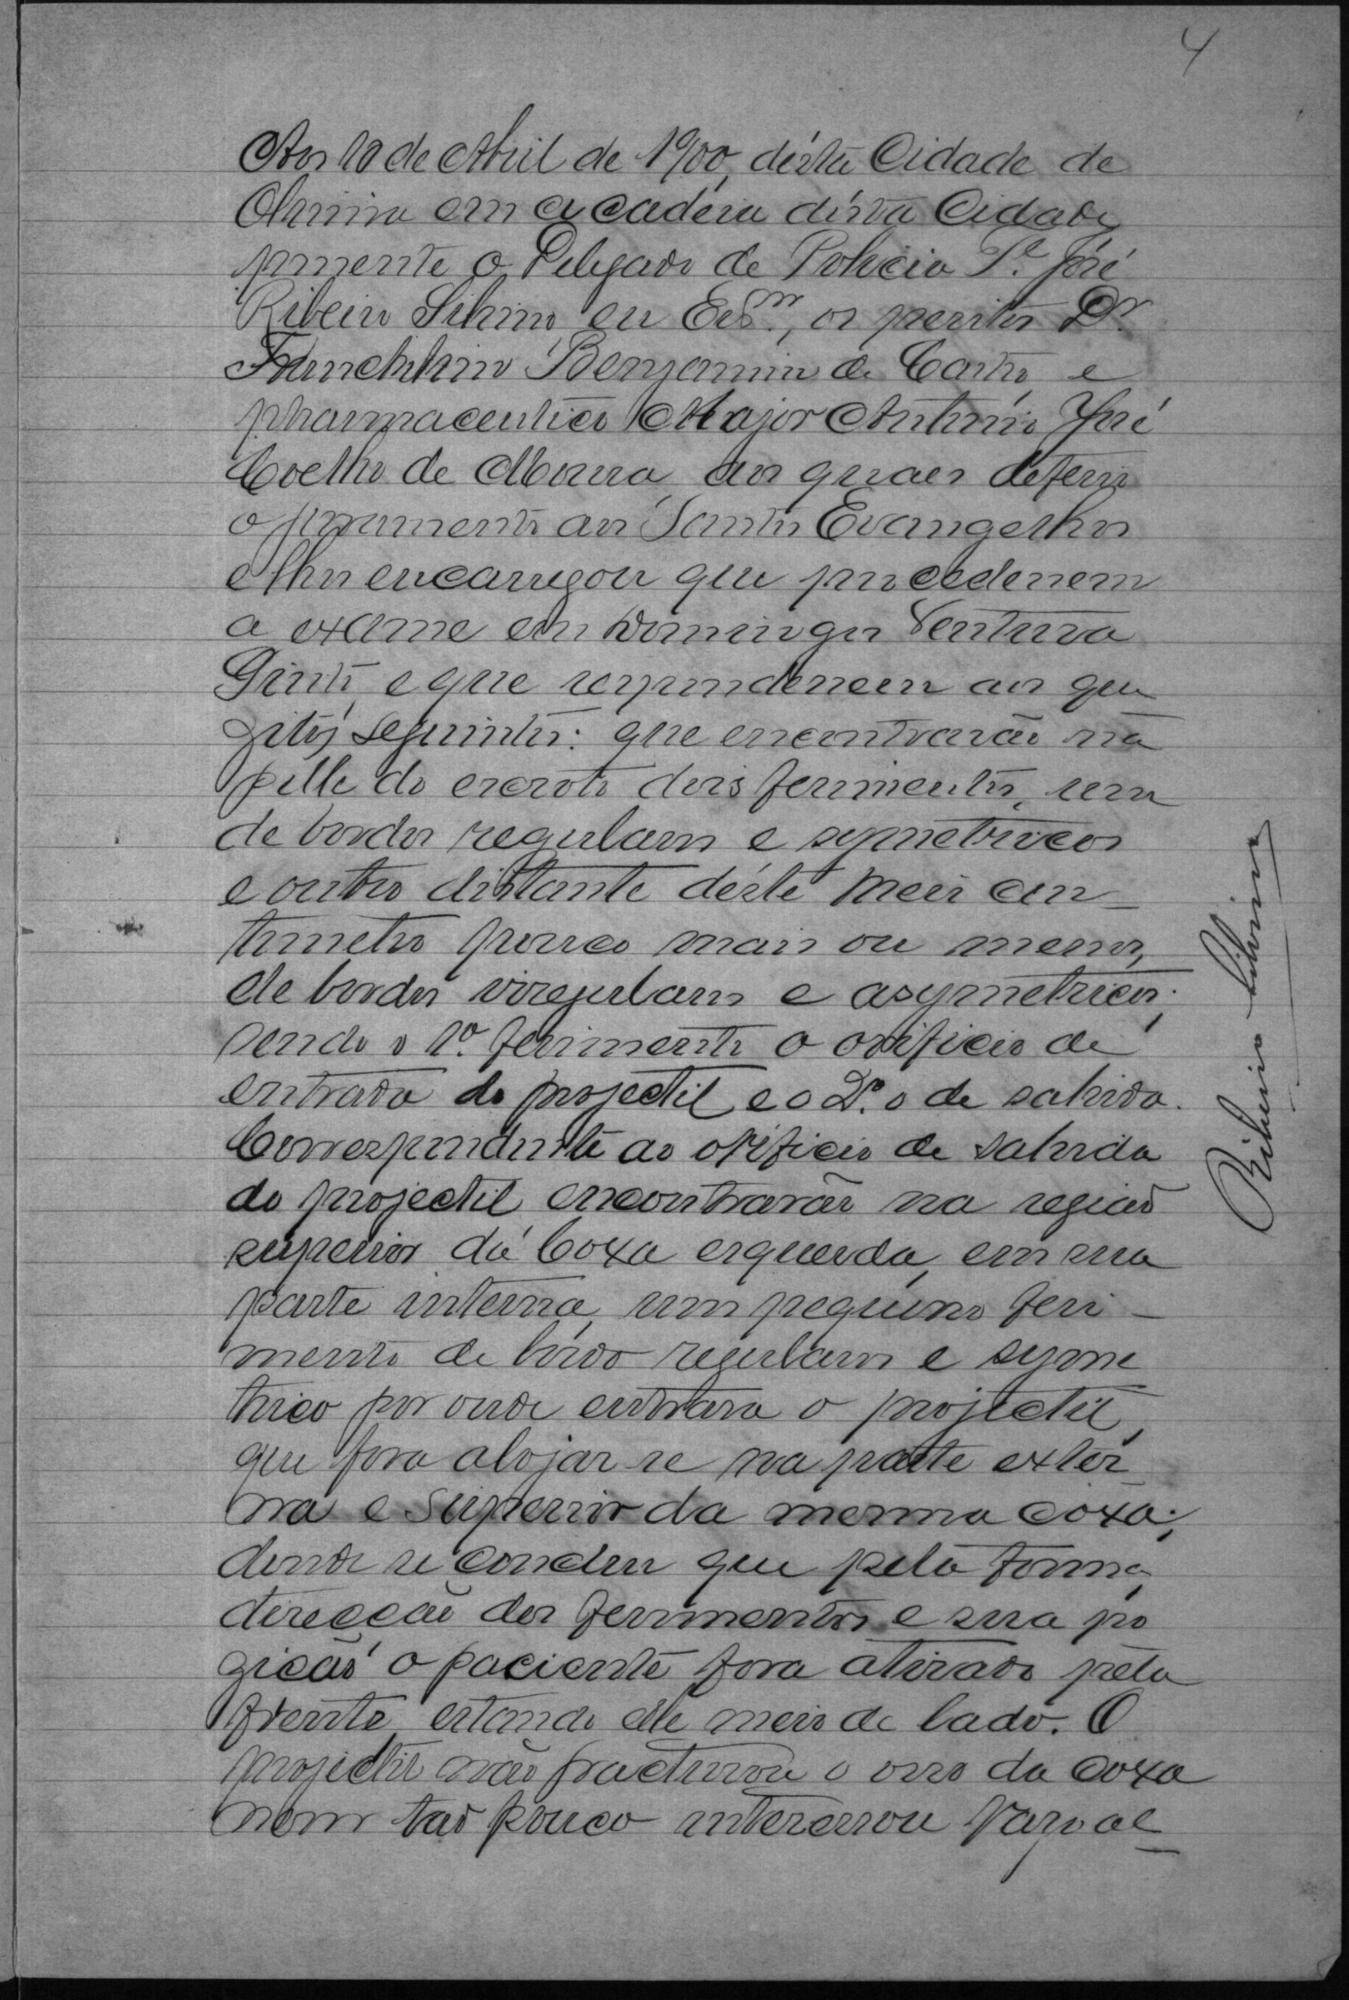 4
Aos 10 de Abril de 1900, désta Cidade de
em a cadéia désta Cidade
presente o Delegado de Policia Te. José
Ribeiro Silvino eu Escm., os peritos Dr.
Francklino Benjamim de Castro e
pharmaceutico Major Antonio José
Coelho de Moura, aos quaes deferio
o juramento aos Santos Evangelhos
e lhes encarregou que procedessem
a exame em Domingos Ventura
e que respondessem aos que
zitos seguintes: que encontrarão na
pelle do escroto dois ferimentos, um
de bordos regulares e symetricos
e outro distante déste meio cen-
timetro pouco mais ou menos,
de bordos irregulares e asymetricos;
sendo o 1º. ferimento o orificio de
entrada do projectil e o 2º. o de sahida.
Correspondente ao orificio de sahida
do projectil encontrarão na região
superior da Coxa esquerda, em sua
parte interna, um pequeno feri-
mento de bordo regulares e syme
trico por onde entrara o projectil,
que fora alojar-se na parte exter
na e superior da mesma coxa;
donde se conclue que pela forma,
direcção dos ferimentos e sua po
zicão o paciente fora atirado pela
frente, estando elle meio de lado. O
projectil não fracturou o osso da coxa
nem tão pouco interessou vaso al-
Ribeiro Silvino